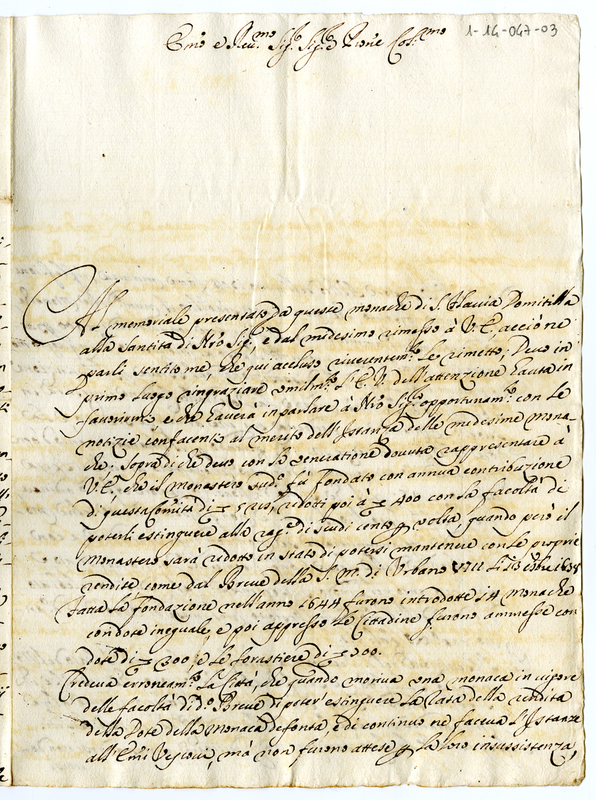 1-14-047-03
Emo e Reu.mo Sig.r Sig.re Prone Col.mo
Al memoriale presentato da queste monache di S. Flavia Domitilla
alla Santità di Nro Sig.re, e dal medesimo rimesso à V.E., acciò ne
parli sentito me che qui accluso riverentem.te Le rimetto; Devo in
primo luogo ringraziare umilm.te L'E.V. dell'attenzione hauta in
favorirmi, e che haverà in parlare à Nro Sig.re opportunam.te con le
notizie confacenti al merito dell'Istanza delle medesime mona-
che; Sopra di che devo con la venerazione dovuta rappresentare à
V.E., che il monastero sud.o fù fondato con annua contribuzione
di questa Com̃ità di ridotti poi à 400 con la facoltà di
poterli estinguere alla rag.e di scudi cento p volta, quando però il
Monastero sarà ridotto in stato di potersi mantenere con le proprie
rendite come dal Breve della S.M. di Urbano VIII li 13 8bre 1638
Fatta la fondazione nell'anno 1644 furono introdotte 14 monache
con dote ineguale, e poi appresso le Cittadine furono ammesse con
dote di 200, e le forastiere di 300.
Credeva erroneam.te la Città, che quando moriva una monaca in vigore
delle facoltà di d.o Breve di poter estinguere la rata della rendita
della Dote della Monaca defonta, e di continuo ne faceva l'Istanze
all'Emi Vescovi, mà non furono attese p la loro insussistenza,